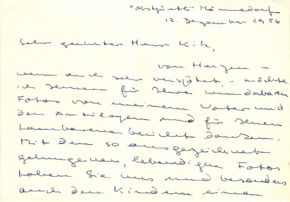 "Obstgärtli" Männedorf
12. Dezember 1956
Sehr geehrter Herr Kik,
von Herzen –
wenn auch sehr verspätet – möchte
ich Ihnen für Ihre wunderbaren
Fotos von meinem Vater und
den Antilopen und für Ihren
Lambarene bericht danken.
Mit den so ausgezeichnet
gelungenen, lebendigen Fotos
haben Sie uns und besonders
auch den Kindern einen